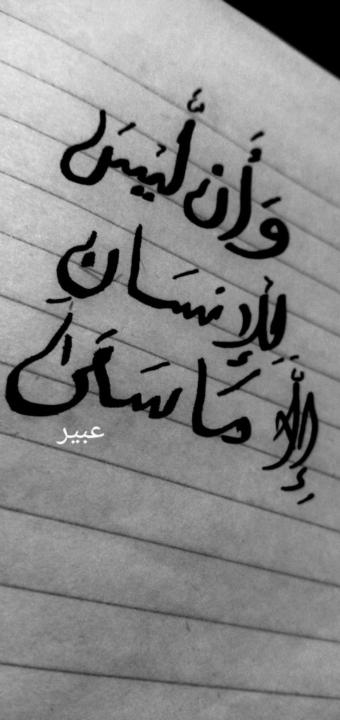 وَأَن لَّيْسَ
لِلْإِنسَانِ
إِلَّا مَا سَعَىٰ
عبير